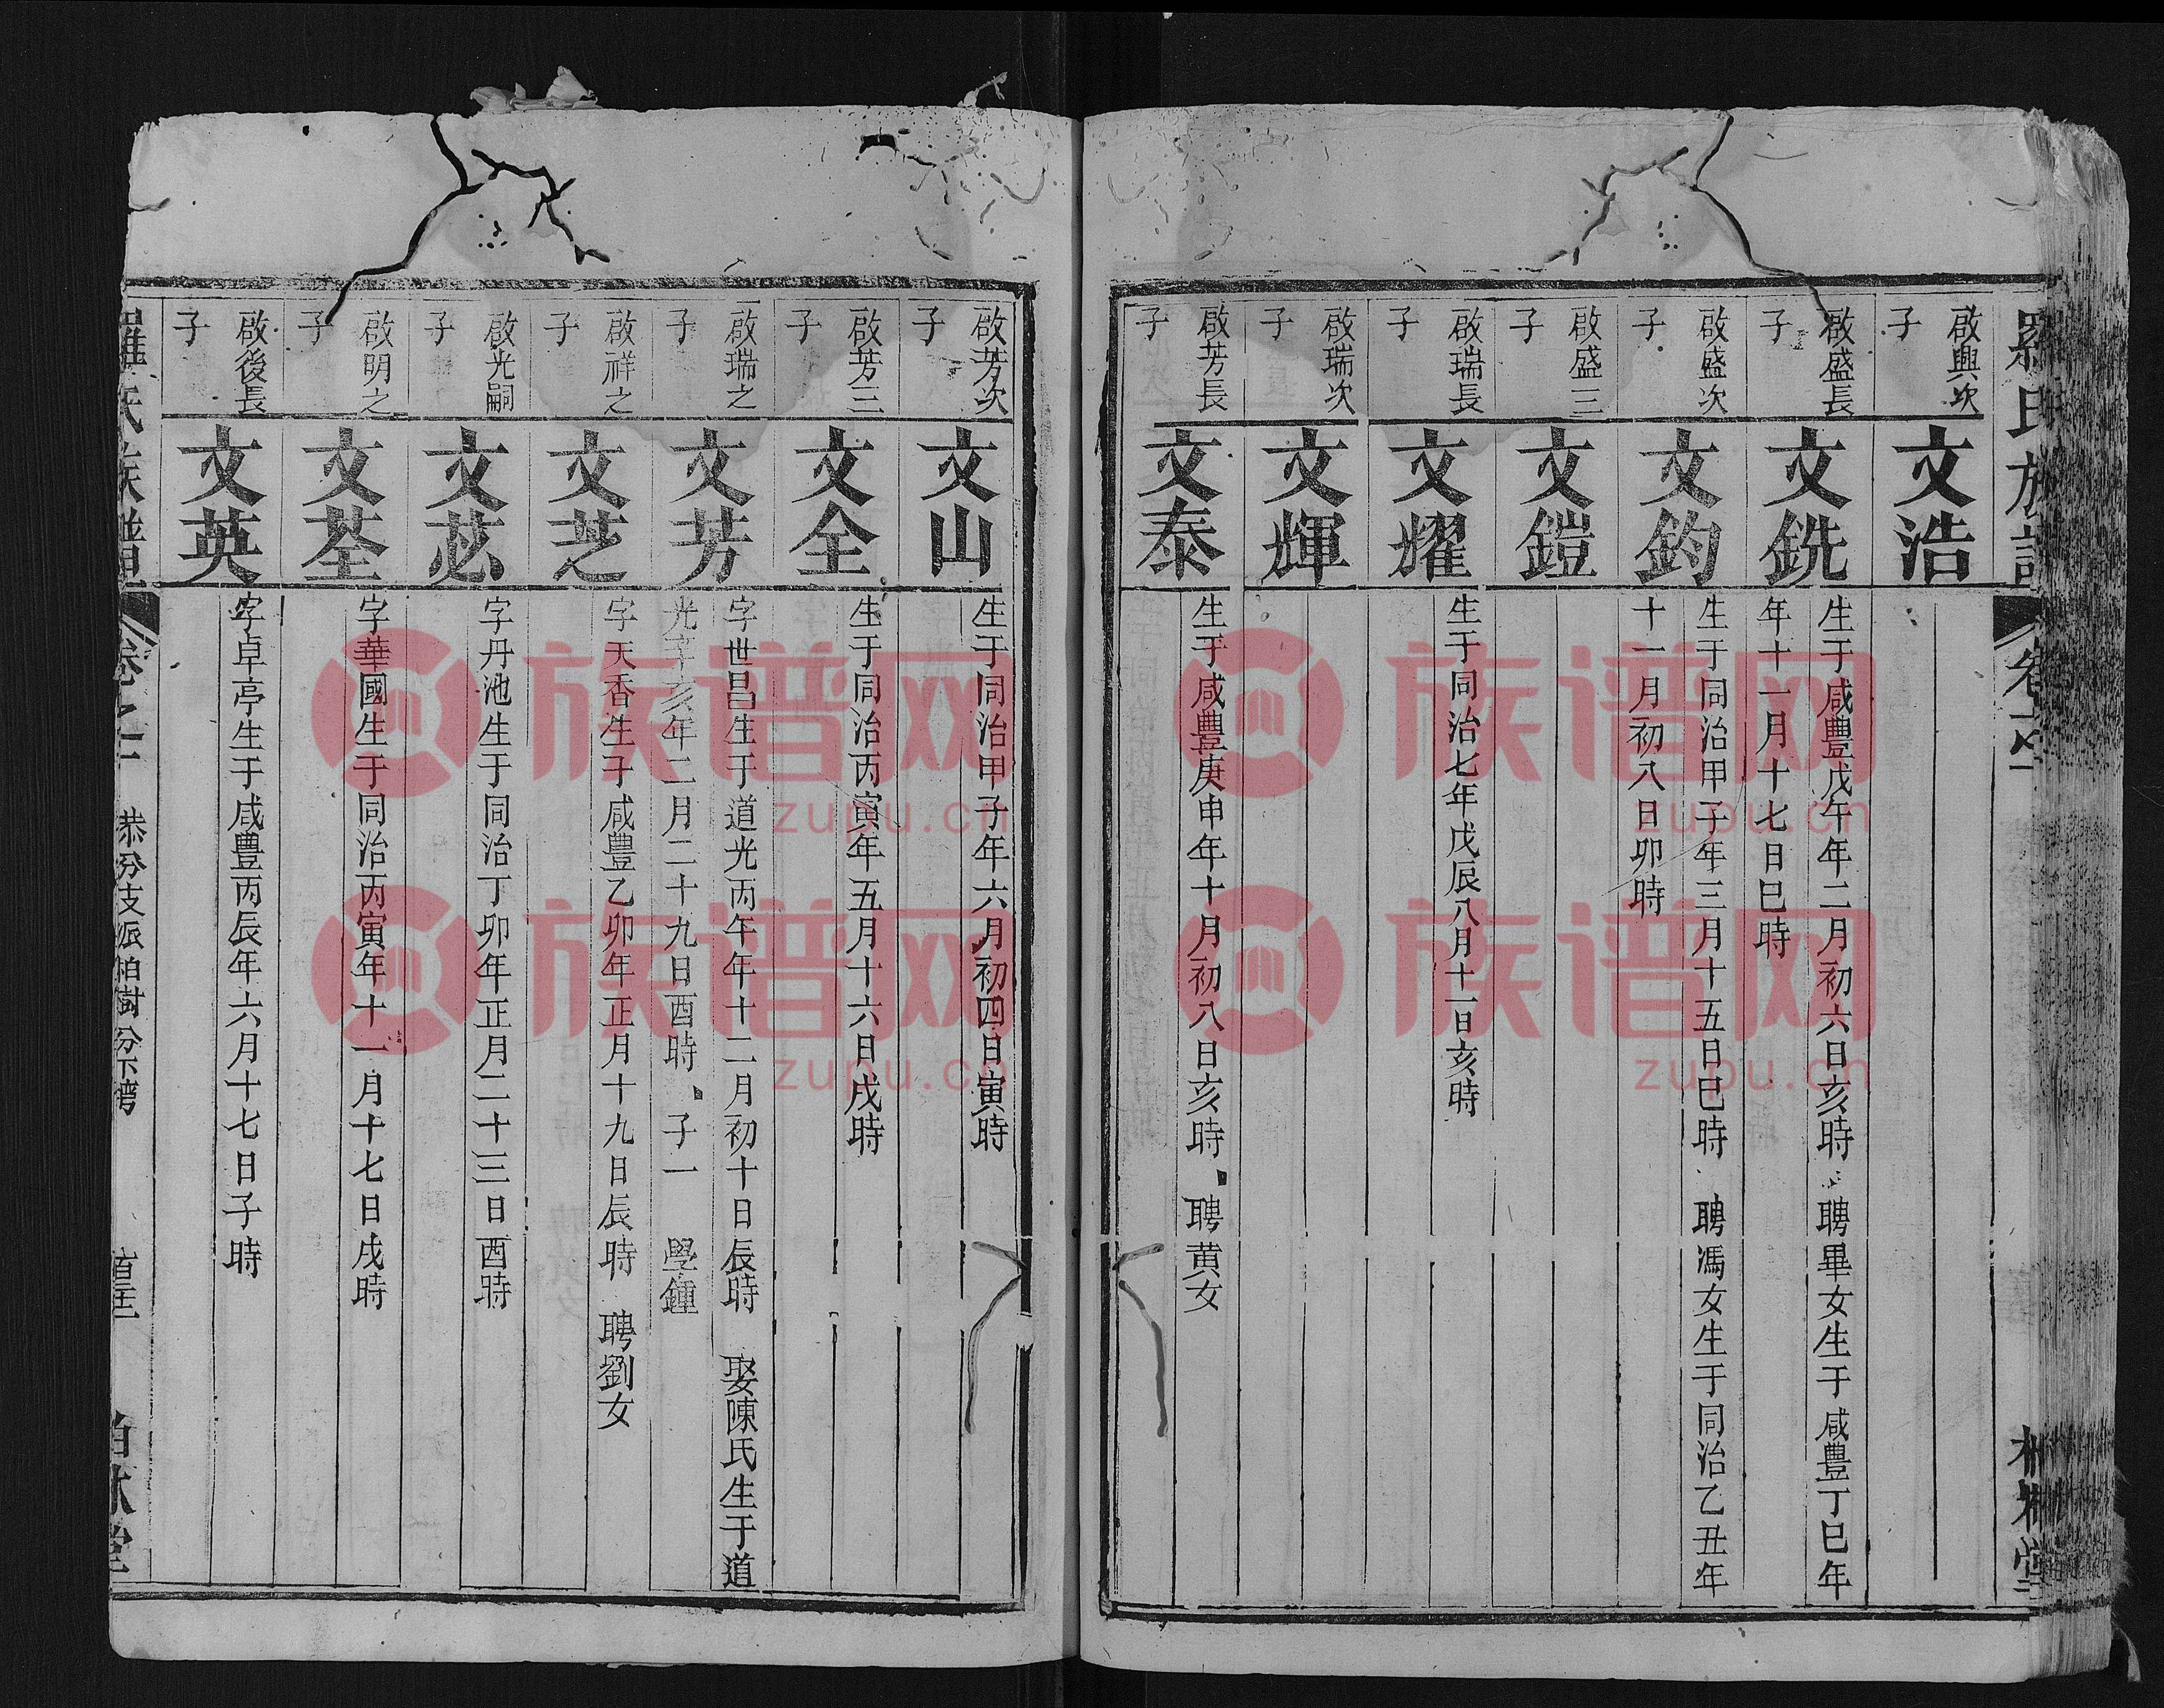 羅氏族譜
卷之二
柏林堂
啟興次
子
文浩
啟盛長
子
文銑
生于咸豐戊午年二月初六日亥時 聘畢女生于咸豐丁巳年
年十一月十七日巳時
啟盛次
子
文鈞
生于同治甲子年三月十五日巳時 聘馮女生于同治乙丑年
十一月初八日卯時
啟盛三
子
文鎧
啟瑞長
子
文耀
生于同治七年戊辰八月十一日亥時
啟瑞次
子
文輝
啟芳長
子
文泰
生于咸豐庚申年十月初八日亥時 聘黄女
啟芳次
子
文山
生于同治甲子年六月初四日寅時
啟芳三
子
文全
生于同治丙寅年五月十六日戌時
啟瑞之
子
文芳
字世昌生于道光丙午年十二月初十日辰時 娶陳氏生于道
光辛亥年二月二十九日酉時 子一 學鍾
啟祥之
子
文芝
字天香生于咸豐乙卯年正月十九日辰時 聘劉女
啟光嗣
子
文苾
字丹池生于同治丁卯年正月二十三日酉時
啟明之
子
文荃
字華國生于同治丙寅年十一月十七日戌時
啟後長
子
文英
字卓亭生于咸豐丙辰年六月十七日子時
羅氏族譜
卷之二
恭分支派柏樹分下灣
柏林堂
族谱网
zupu.cn
族谱网
zupu.cn
族谱网
zupu.cn
族谱网
zupu.cn